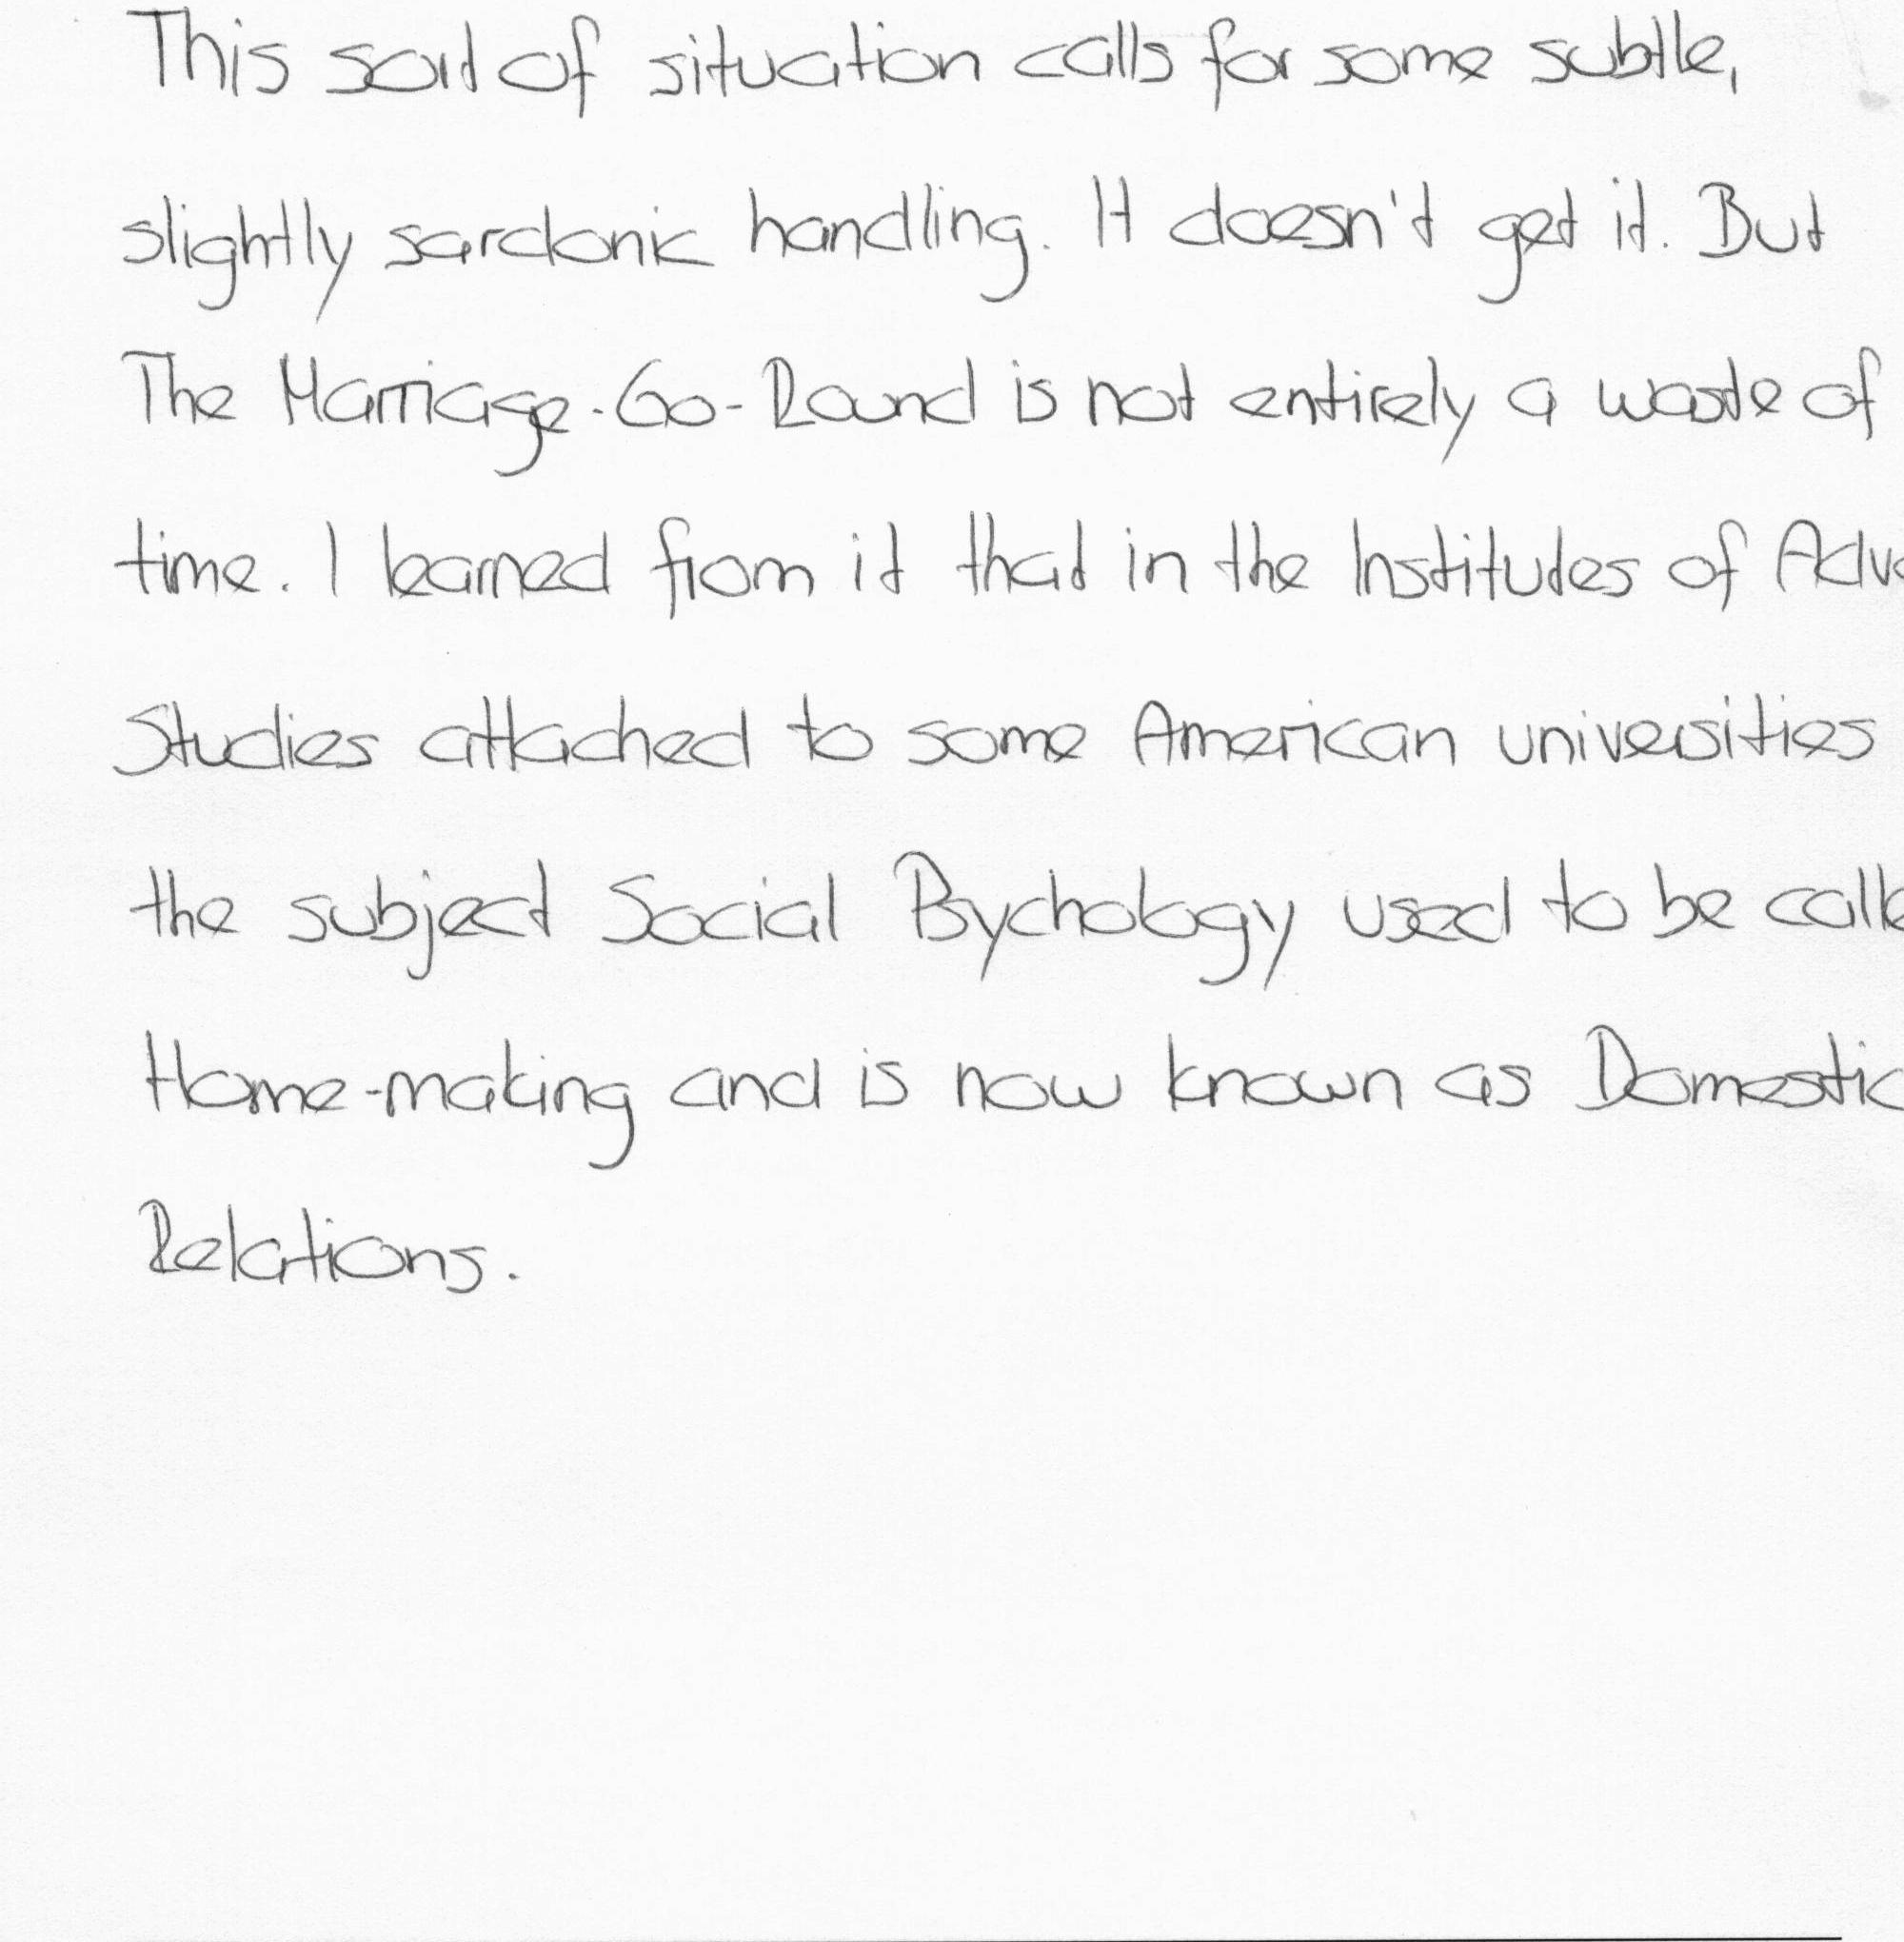 This sort of situation calls for some subtle,
slightly sardonic handling. It doesn't get it. But
The Marriage-Go-Round is not entirely a waste of
time. I learned from it that in the Institutes of
Studies attached to some American universities
the subject Social Psychology used to be
Home-making and is now known as Domestic
Relations.